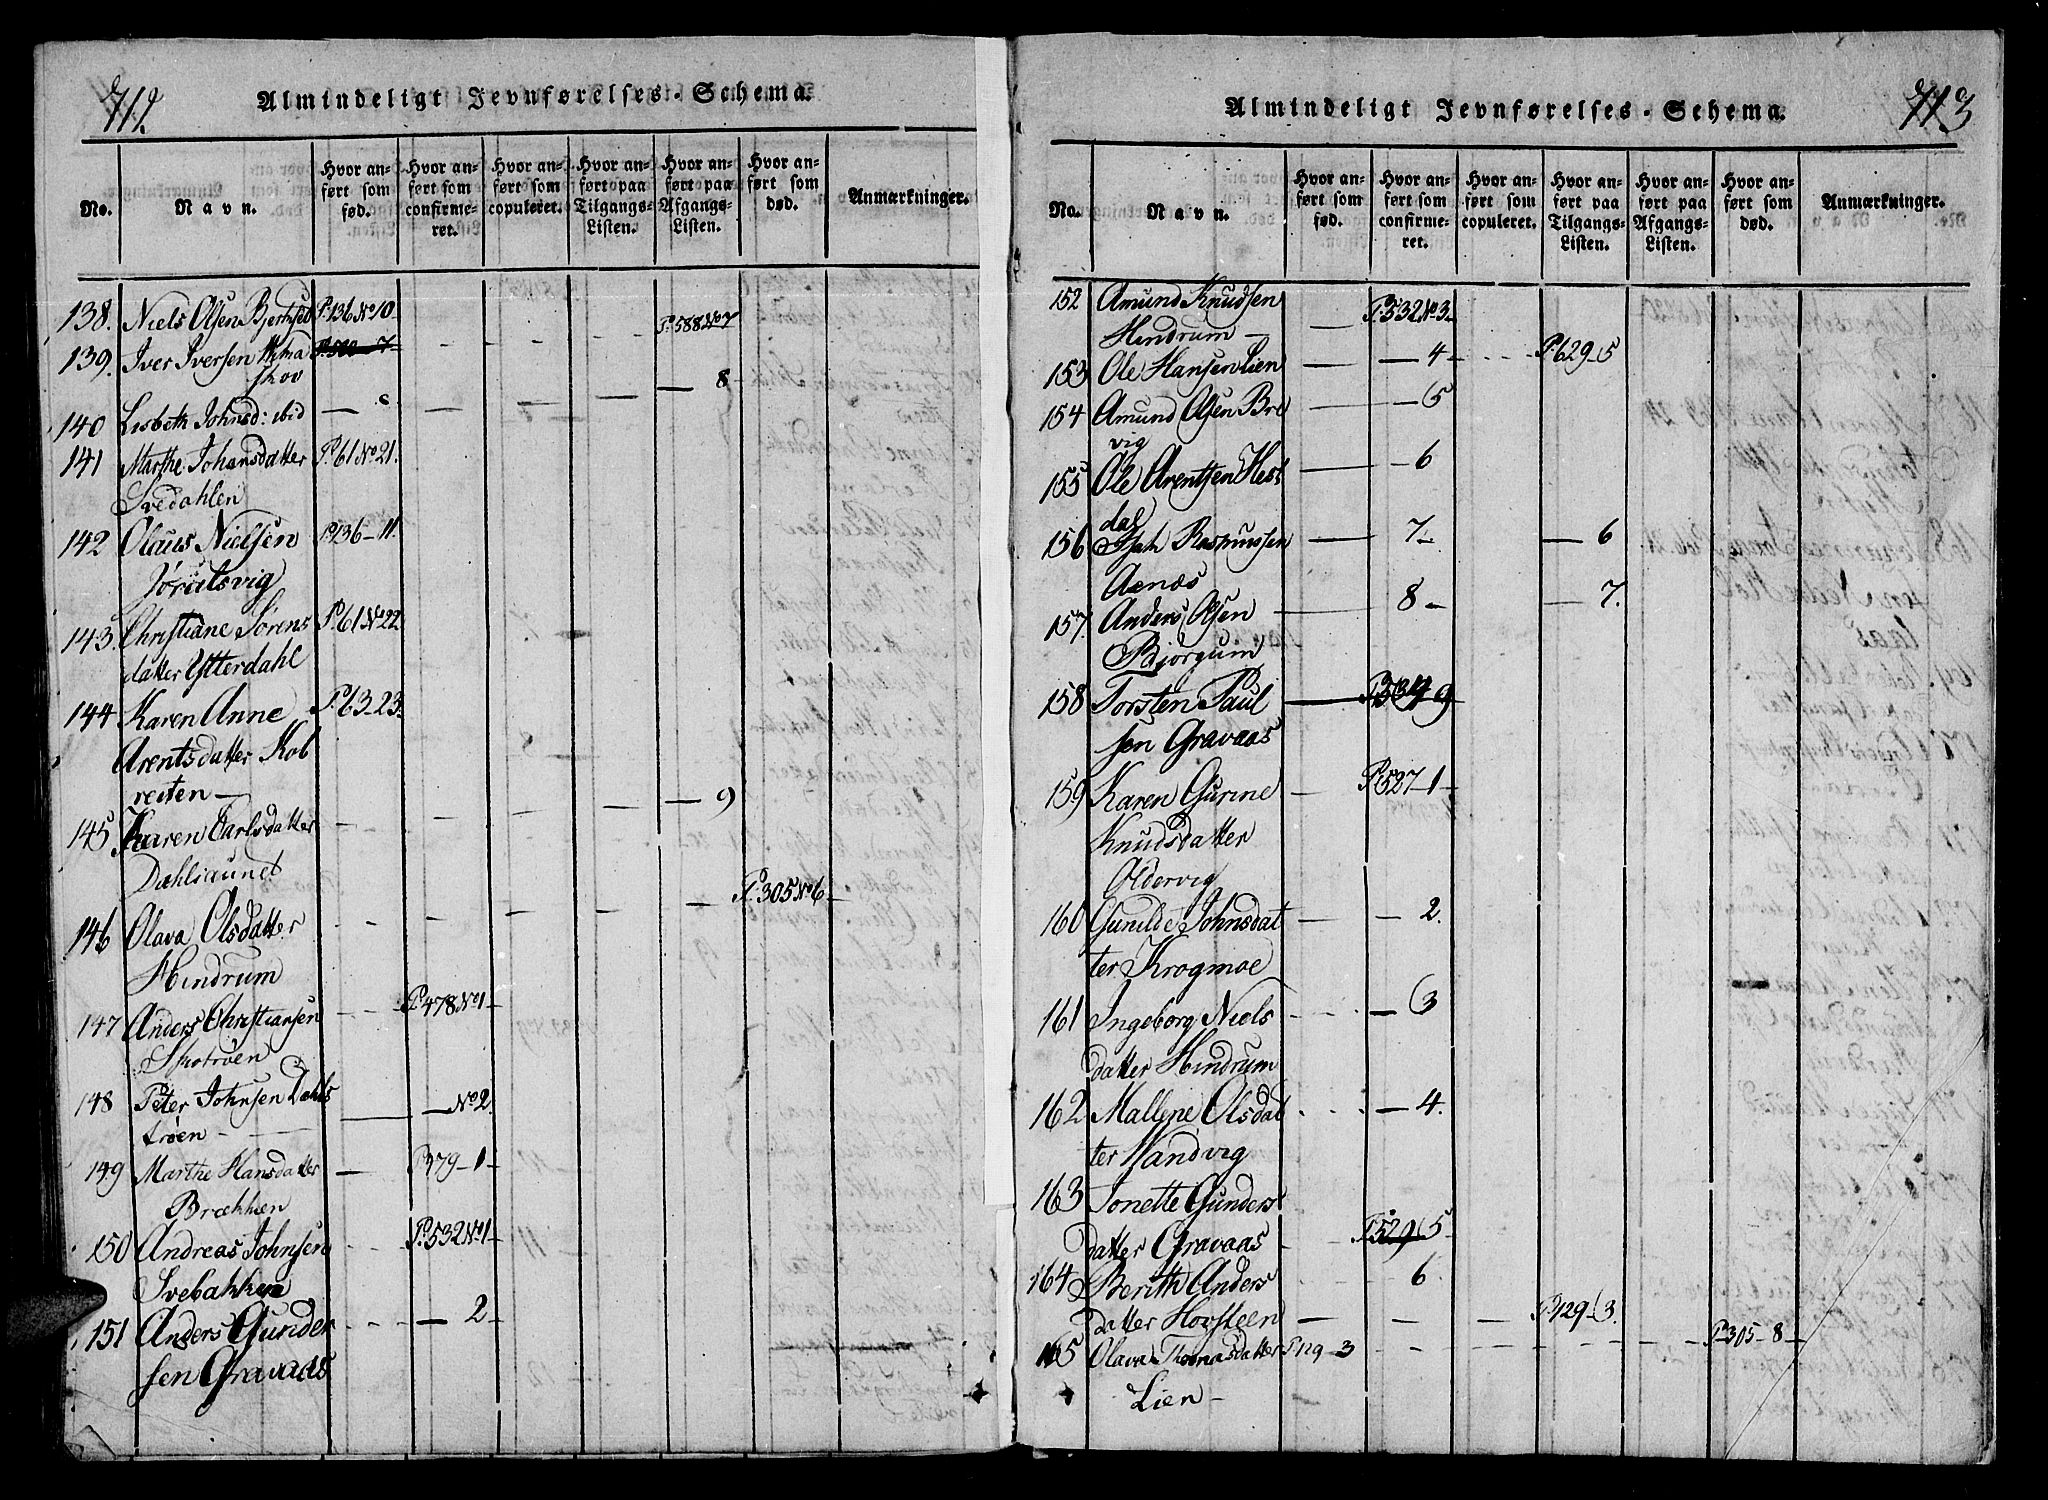 Almindeligt Jevnførelses-Schema.
No.
Navn.
Hvor anført som fød.
Hvor anført som confirmeret.
Hvor anført som copuleret.
Hvor anført paa Tilgangs-Listen.
Hvor anført paa Afgangs-Listen.
Hvor anført som død.
Anmærkninger.
138. Niels Olsen P. 136 No 10. P. 588 No 7
139. Iver Iversen — 8
skov
140 Lisbeth Johnsd: ibid — 8
141 Marthe Johansdatter P. 61 No 21.
Svedahlen
142 Olaus Nielsen P. 136 — 11.
143. Christiane Sørens P. 61 No 22
datter Ytterdahl
144 Karen Anne P. 63 - 23.
Arentsdatter Kol
reiten —
145 Karen Carlsdatter — 9
146 Olava Olsdatter P. 305 No 6
Hindrum
147 Anders Christiansen P. 478 No 1
148 Peter Johnsen Dahls — No 2.
trøen
149 Marthe Hansdatter — 1
Brækken
150 Andreas Johnsen P. 532 No 1
Svebakken
151 Anders Gunder — 2
sen Gravaas
Almindeligt Jevnførelses-Schema.
113
No.
Navn.
Hvor anført som fød.
Hvor anført som confirmeret.
Hvor anført som copuleret.
Hvor anført paa Tilgangs-Listen.
Hvor anført paa Afgangs-Listen.
Hvor anført som død.
Anmærkninger.
152 Amund Knudsen P. 532 No 3
Hindrum —
153 Ole Hansen Lien — 4 P. 629 - 5
154 Amund Olsen Bre — 5
vig
155 Ole Arentsen Hest — 6
dal
156 Rasmussen — 7 — 6
Aenæs
157 Anders Olsen — 8 — 7.
Bjørgum
158 Torsten Paul — 9
sen Gravaas
159 Karen Gurine P. 527 - 1
Knudsdatter
Oldervig
160 Gunilde Johnsdat — 2.
ter Krogmoe
161 Ingeborg Niels — 3
datter Hindrum
162 Mallene Olsdat — 4.
ter Handvig
163 Jonette Gunders
datter Gravaas P. 529 5
164 Berith Anders 6
datter Hovsteen — 3.
165 Olava Thomasdatter 3 P. 305 - 8
Lien —